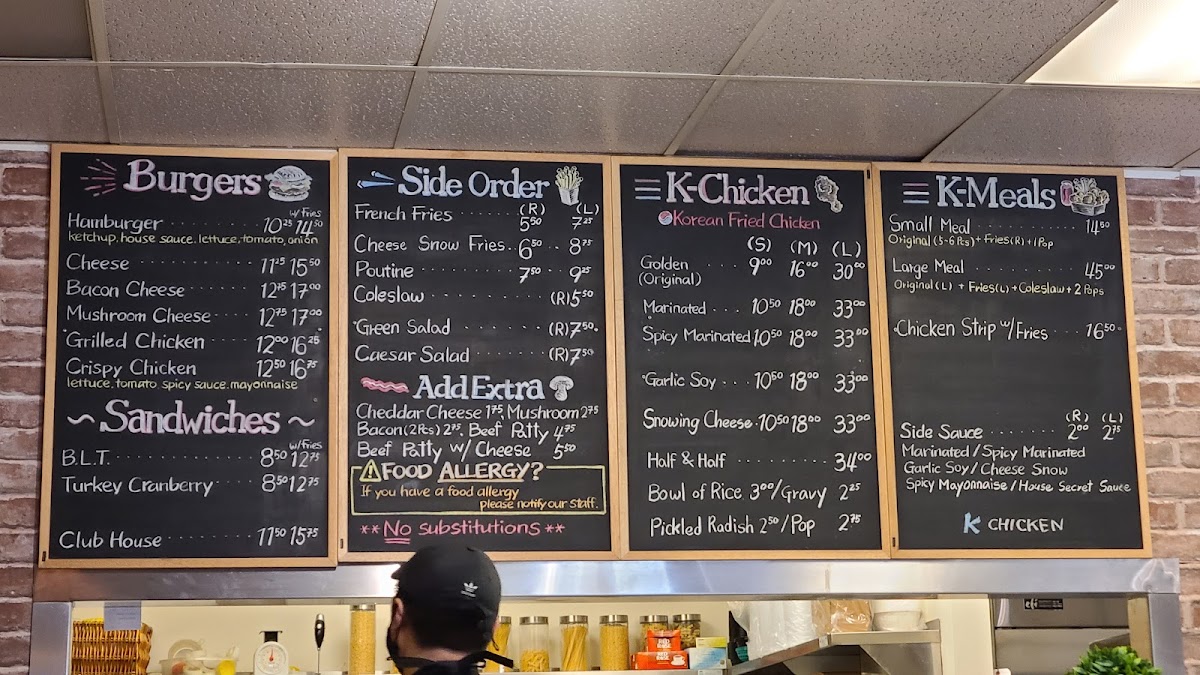 Burgers
w/Fries
Hamburger 10.25 14.50
ketchup, house sauce, lettuce, tomato, onion
Cheese 11.25 15.50
Bacon Cheese 12.75 17.00
Mushroom Cheese 12.75 17.00
Grilled Chicken 12.00 16.25
Crispy Chicken 12.50 16.75
lettuce, tomato spicy sauce, mayonnaise
~ Sandwiches ~
w/fries
B.L.T. 8.50 12.75
Turkey Cranberry 8.50 12.75
Club House 11.50 15.75
Side Order
(R) (L)
French Fries 5.50 7.25
Cheese Snow Fries 6.50 8.75
Poutine 7.50 9.25
Coleslaw (R) 5.50
Green Salad (R) 7.50
Caesar Salad (R) 7.50
Add Extra
Cheddar Cheese 1.75, Mushroom 2.75
Bacon (2 Pcs) 2.75, Beef Patty 4.75
Beef Patty w/ Cheese 5.50
FOOD ALLERGY?
If you have a food allergy
please notify our staff.
**No substitutions**
K-Chicken
Korean Fried Chicken
(S) (M) (L)
Golden 9.00 16.00 30.00
(Original)
Marinated 10.50 18.00 33.00
Spicy Marinated 10.50 18.00 33.00
Garlic Soy 10.50 18.00 33.00
Snowing Cheese 10.50 18.00 33.00
Half & Half 34.00
Bowl of Rice 3.00 / Gravy 2.25
Pickled Radish 2.50 / Pop 2.75
K-Meals
Small Meal 14.50
Original (5-6 Pcs) + Fries (R) + 1 Pop
Large Meal 45.00
Original (L) + Fries (L) + Coleslaw + 2 Pops
Chicken Strip w/ Fries 16.50
(R) (L)
Side Sauce 2.00 2.75
Marinated / Spicy Marinated
Garlic Soy / Cheese Snow
Spicy Mayonnaise / House Secret Sauce
K CHICKEN